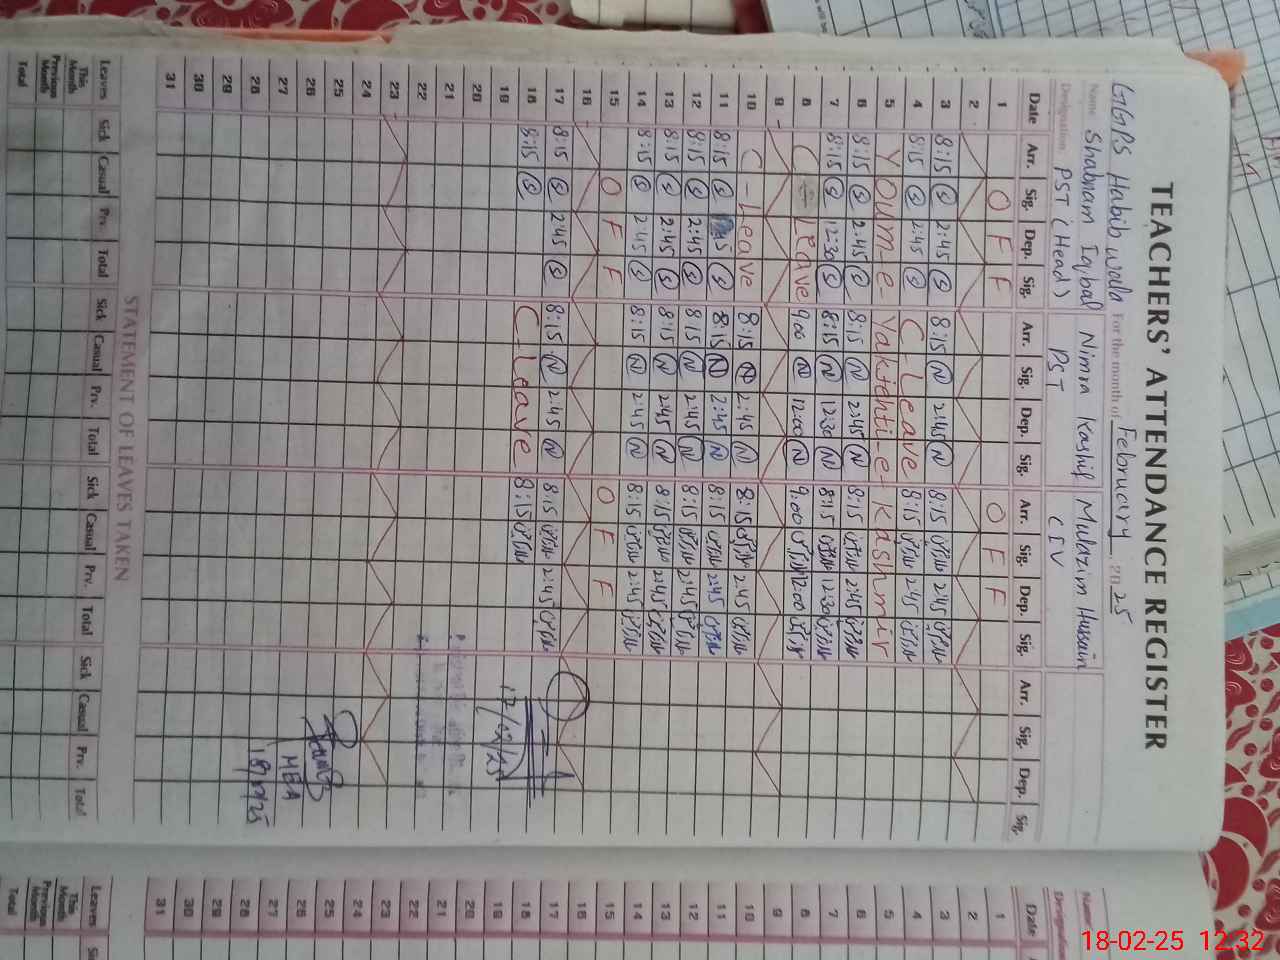 TEACHERS' ATTENDANCE REGISTER
GGPS Habib wala For the month of February 2025
Name Shabnam Iqbal Nimra Kashif Mulazim Hussain
Designation PST (Head) PST C IV
Date Arr. Sig. Dep. Sig. Arr. Sig. Dep. Sig. Arr. Sig. Dep. Sig. Arr. Sig. Dep. Sig.
1 O F F O F F
2
3 8:15 S 2:45 S 8:15 N 2:45 N 8:15 2:45
4 8:15 S 2:45 S C-Leave 8:15 2:45
5 Youm-e-Yakjehti-e-Kashmir
6 8:15 S 2:45 S 8:15 N 2:45 N 8:15 2:45
7 8:15 S 12:30 S 8:15 N 12:30 N 8:15 12:30
8 C Leave 9:00 N 12:00 N 9:00 12:00
9
10 C-Leave 8:15 N 2:45 N 8:15 2:45
11 8:15 S S 8:15 N 2:45 N 8:15 2:45
12 8:15 S 2:45 S 8:15 N 2:45 N 8:15 2:45
13 8:15 S 2:45 S 8:15 N 2:45 N 8:15 2:45
14 8:15 S 2:45 S 8:15 N 2:45 N 8:15 2:45
15 O F F O F F
16
17 8:15 S 2:45 S 8:15 N 2:45 N 8:15 2:45
18 8:15 S C-Leave 8:15
19 17/02/25
20
21
22
23
24
25
26
27 MEA
28 18/02/25
29
30
31
STATEMENT OF LEAVES TAKEN
Leaves Sick Casual Prv. Total Sick Casual Prv. Total Sick Casual Prv. Total Sick Casual Prv. Total
This Month
Previous Month
Total
Name
Designation
Date
1
2
3
4
5
6
7
8
9
10
11
12
13
14
15
16
17
18
19
20
21
22
23
24
25
26
27
28
29
30
31
Leaves
This Month
Previous Month
Total
18-02-25 12:32